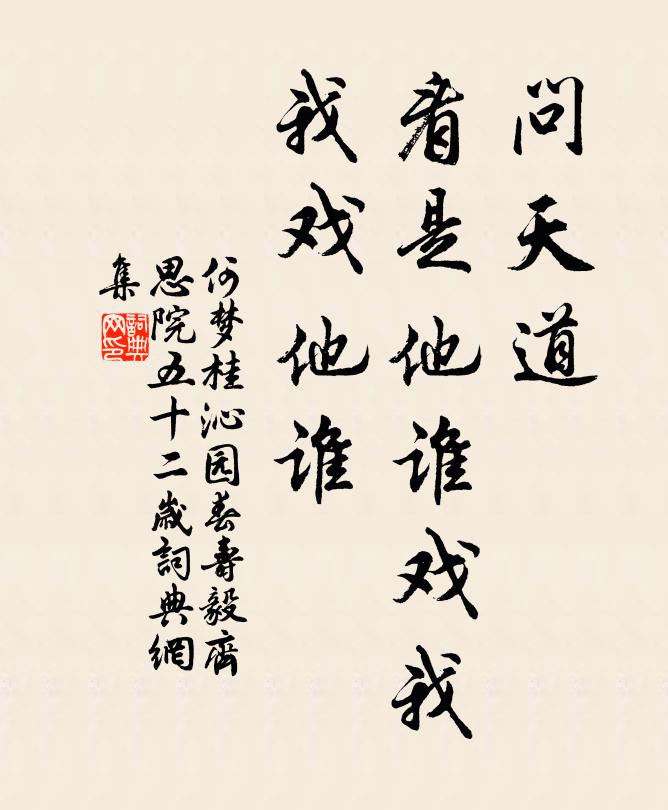 問天道
看是他谁戏我
我戏他谁
何梦桂沁园春寿毅齋
思院五十二歲詞典網
集
詞典網印